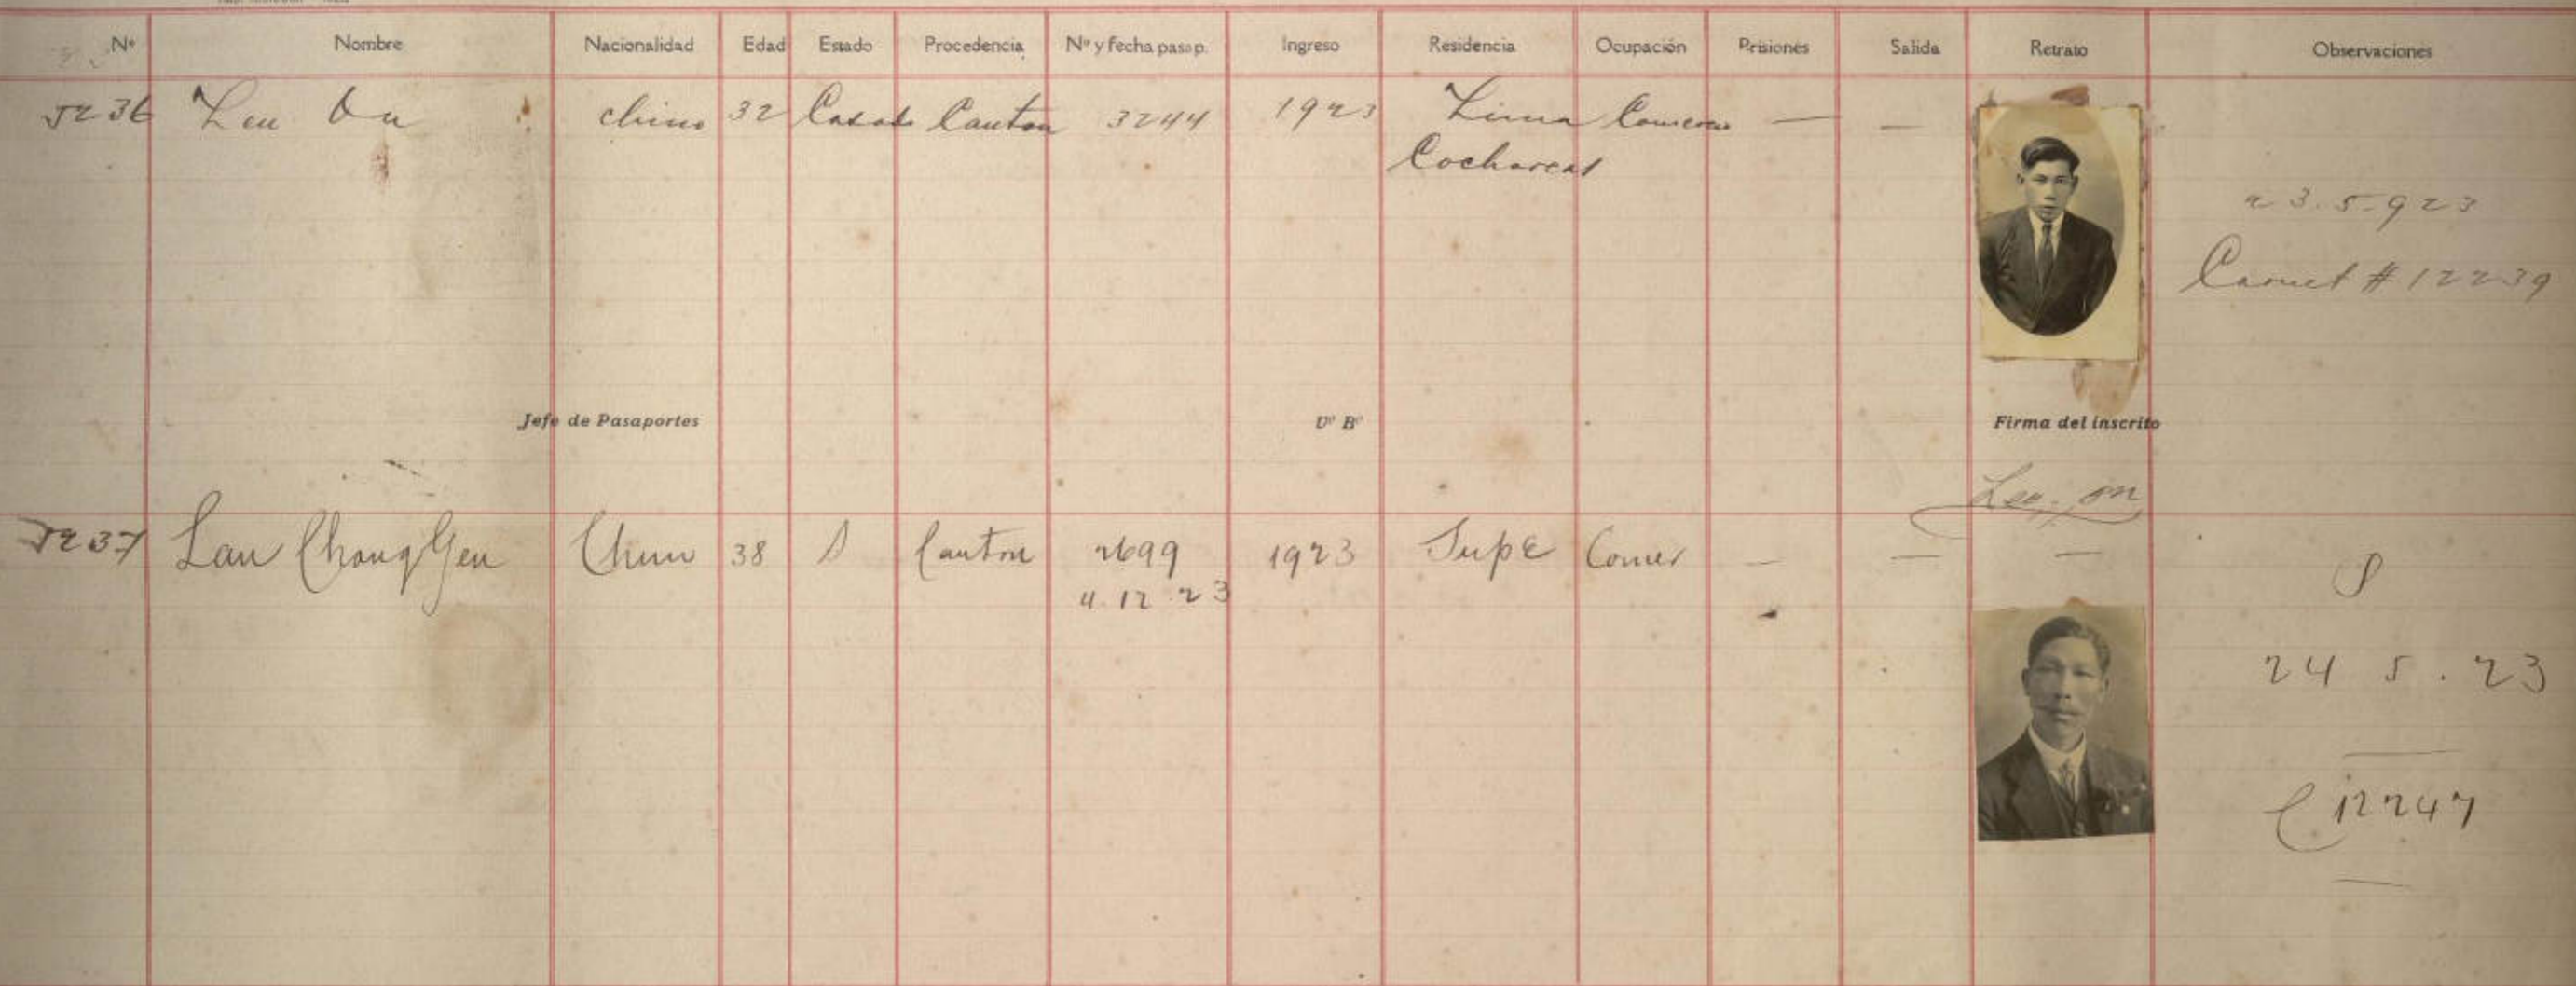 Nº Nombre Nacionalidad Edad Estado Procedencia Nº y fecha pasap. Ingreso Residencia Ocupación Prisiones Salida Retrato Observaciones
5236 Leu On chino 32 Casado Canton 3244 1923 Lima Comercio — —
Cocharcas
23.5.923
Carnet # 12239
Jefe de Pasaportes Vº Bº Firma del inscrito
Lee. on
5237 Lau Chong Gen Chino 38 S Canton 2699 1923 Supe Comer — — —
4.12.23
24 5.23
C 12247